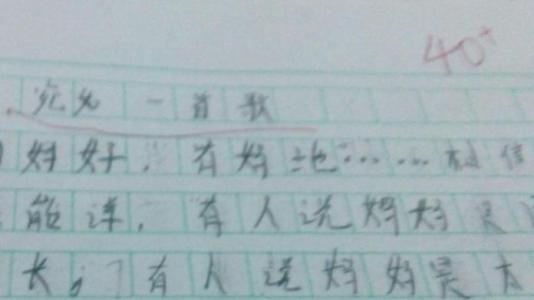 40+
一首歌
妈好，有妈地……相信
能详，有人说妈妈是
长，有人说妈妈是大